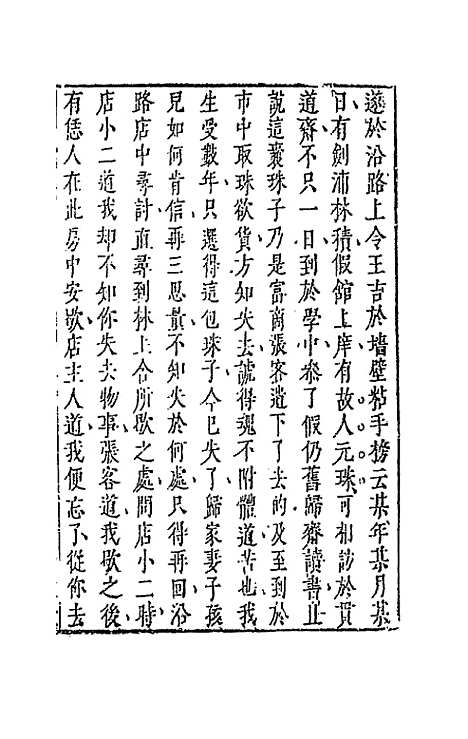 遂於沿路上令王吉於墻壁粘手榜云某年某月某
日有劍浦林積假館上庠有故人元珠可相訪於貫
道齋不只一日到於學中叅了假仍舊歸齋讀書且
說這囊珠子乃是富商張客遺下了去的及至到於
市中取珠欲貨方知失去諕得魂不附體道苦也我
生受數年只選得這包珠子今已失了歸家妻子孩
兒如何肯信再三思量不知失於何處只得再回沿
路店中尋討直尋到林上舍所歇之處問店小二時
店小二道我却不知你失去物事張客道我歇之後
有恁人在此房中安歇店主人道我便忘了從你去